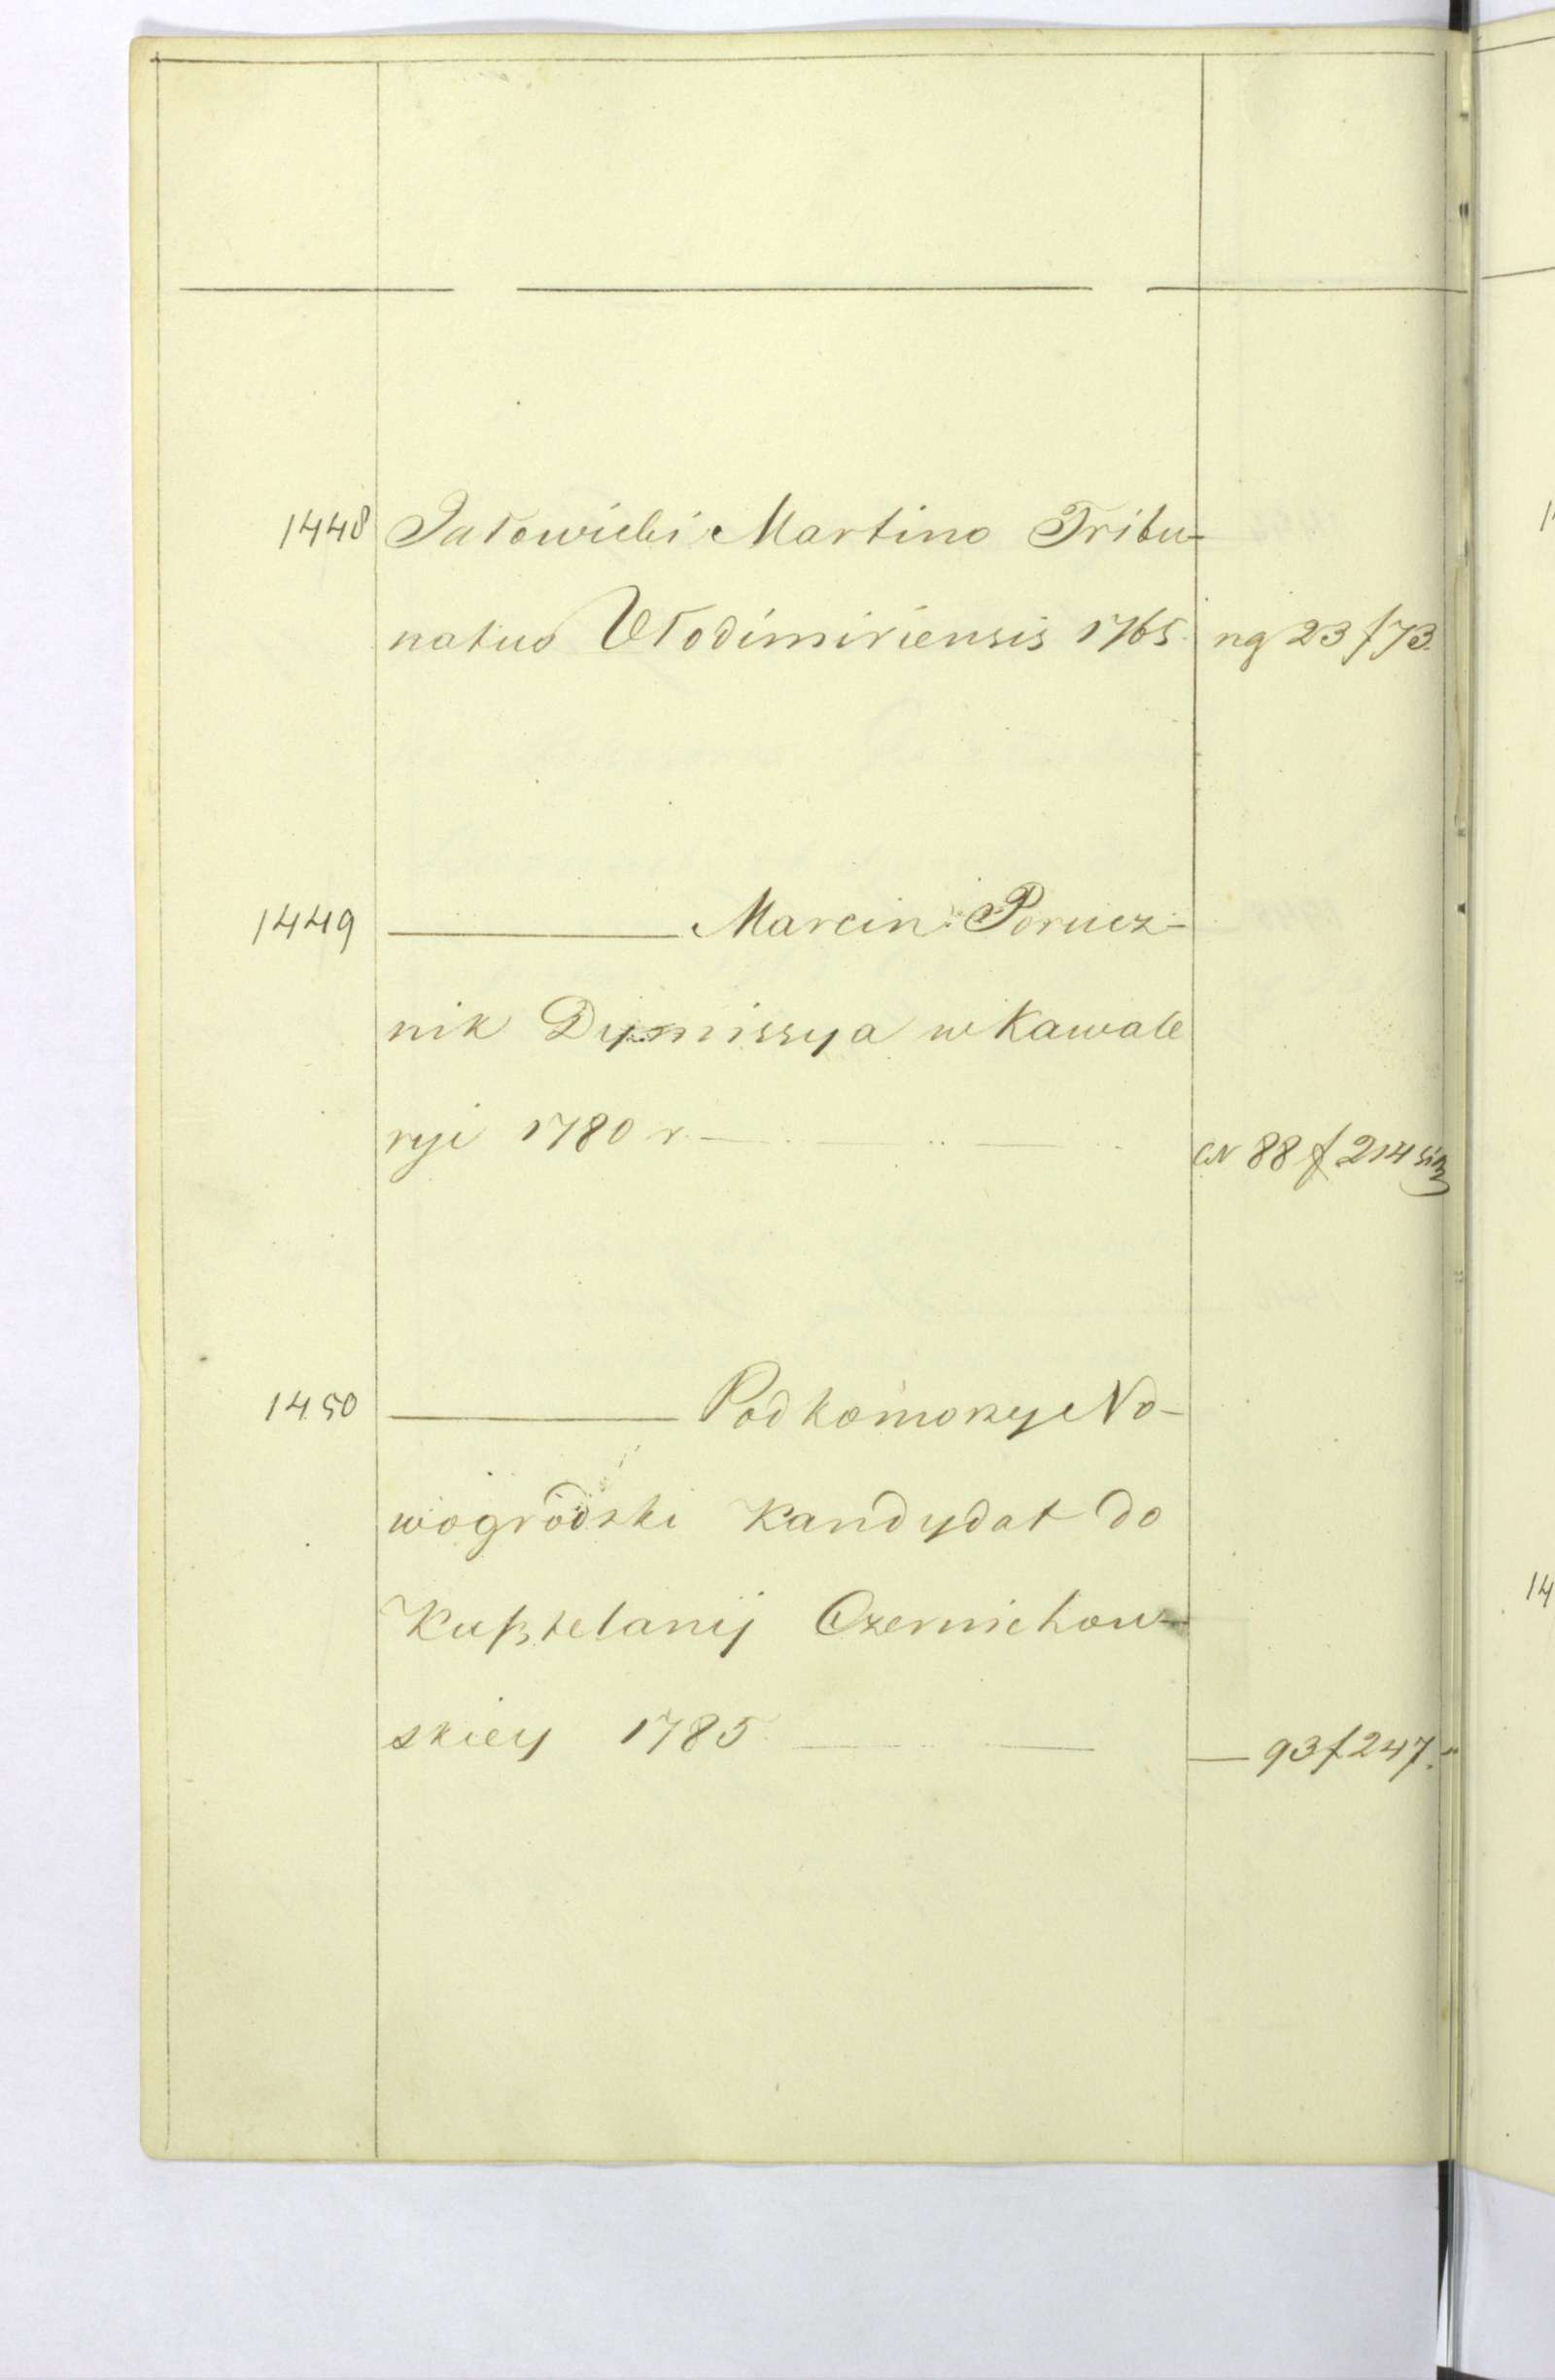 1448 Jałowicki Martino Tribu-
natus Włodimiriensis 1765. ng 23 f 73.
1449 Marcin Porucz-
nik Dymissya w Kawale
ryi 1780 r. N 88 f 214
1450 Podkomorzy No-
wogrodzki Kandydat do
Kasztelanij Czerniechow-
skiey 1785 — 93 f 247.
14